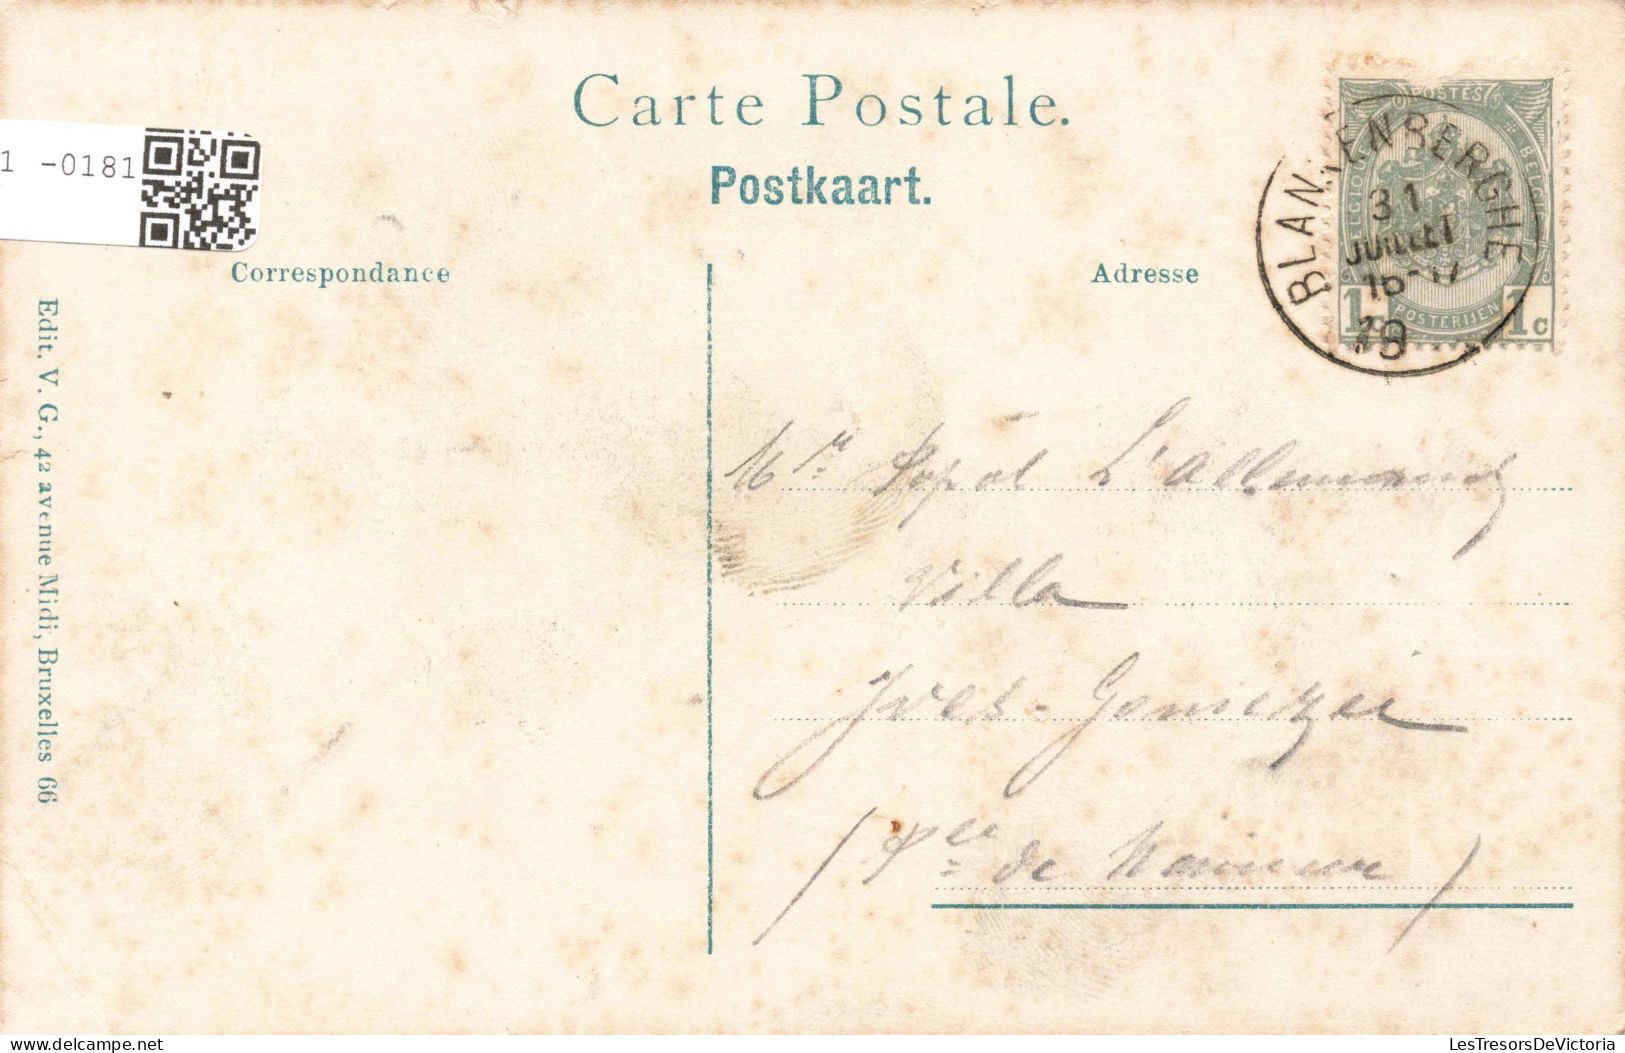 Carte Postale.
Postkaart.
1 -0181
Correspondance
Adresse
Edit. V. G., 42 avenue Midi, Bruxelles 66
POSTES
BELGIQUE BELGIE
POSTERIJEN
1c 1c
BLANKENBERGHE
31
JUILLET
16-17
19
Mr Popol L'allemand
Villa
Yves-Gomezée
(Pce de Namur)
LesTresorsDeVictoria.delcampe.net
LesTresorsDeVictoria